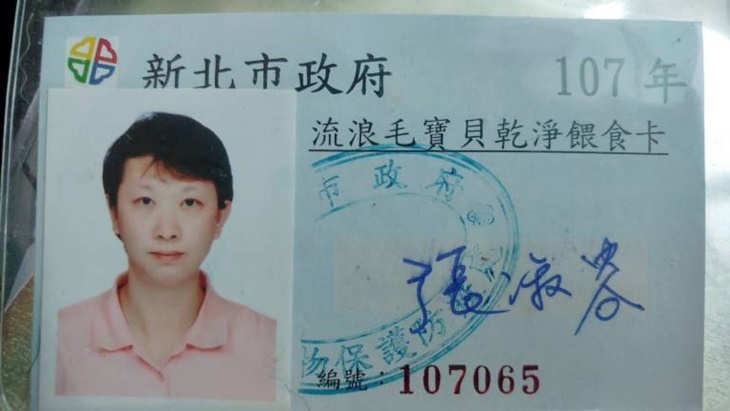 新北市政府
107年
流浪毛寶貝乾淨餵食卡
市政府
張淑
物保護防
編號：107065